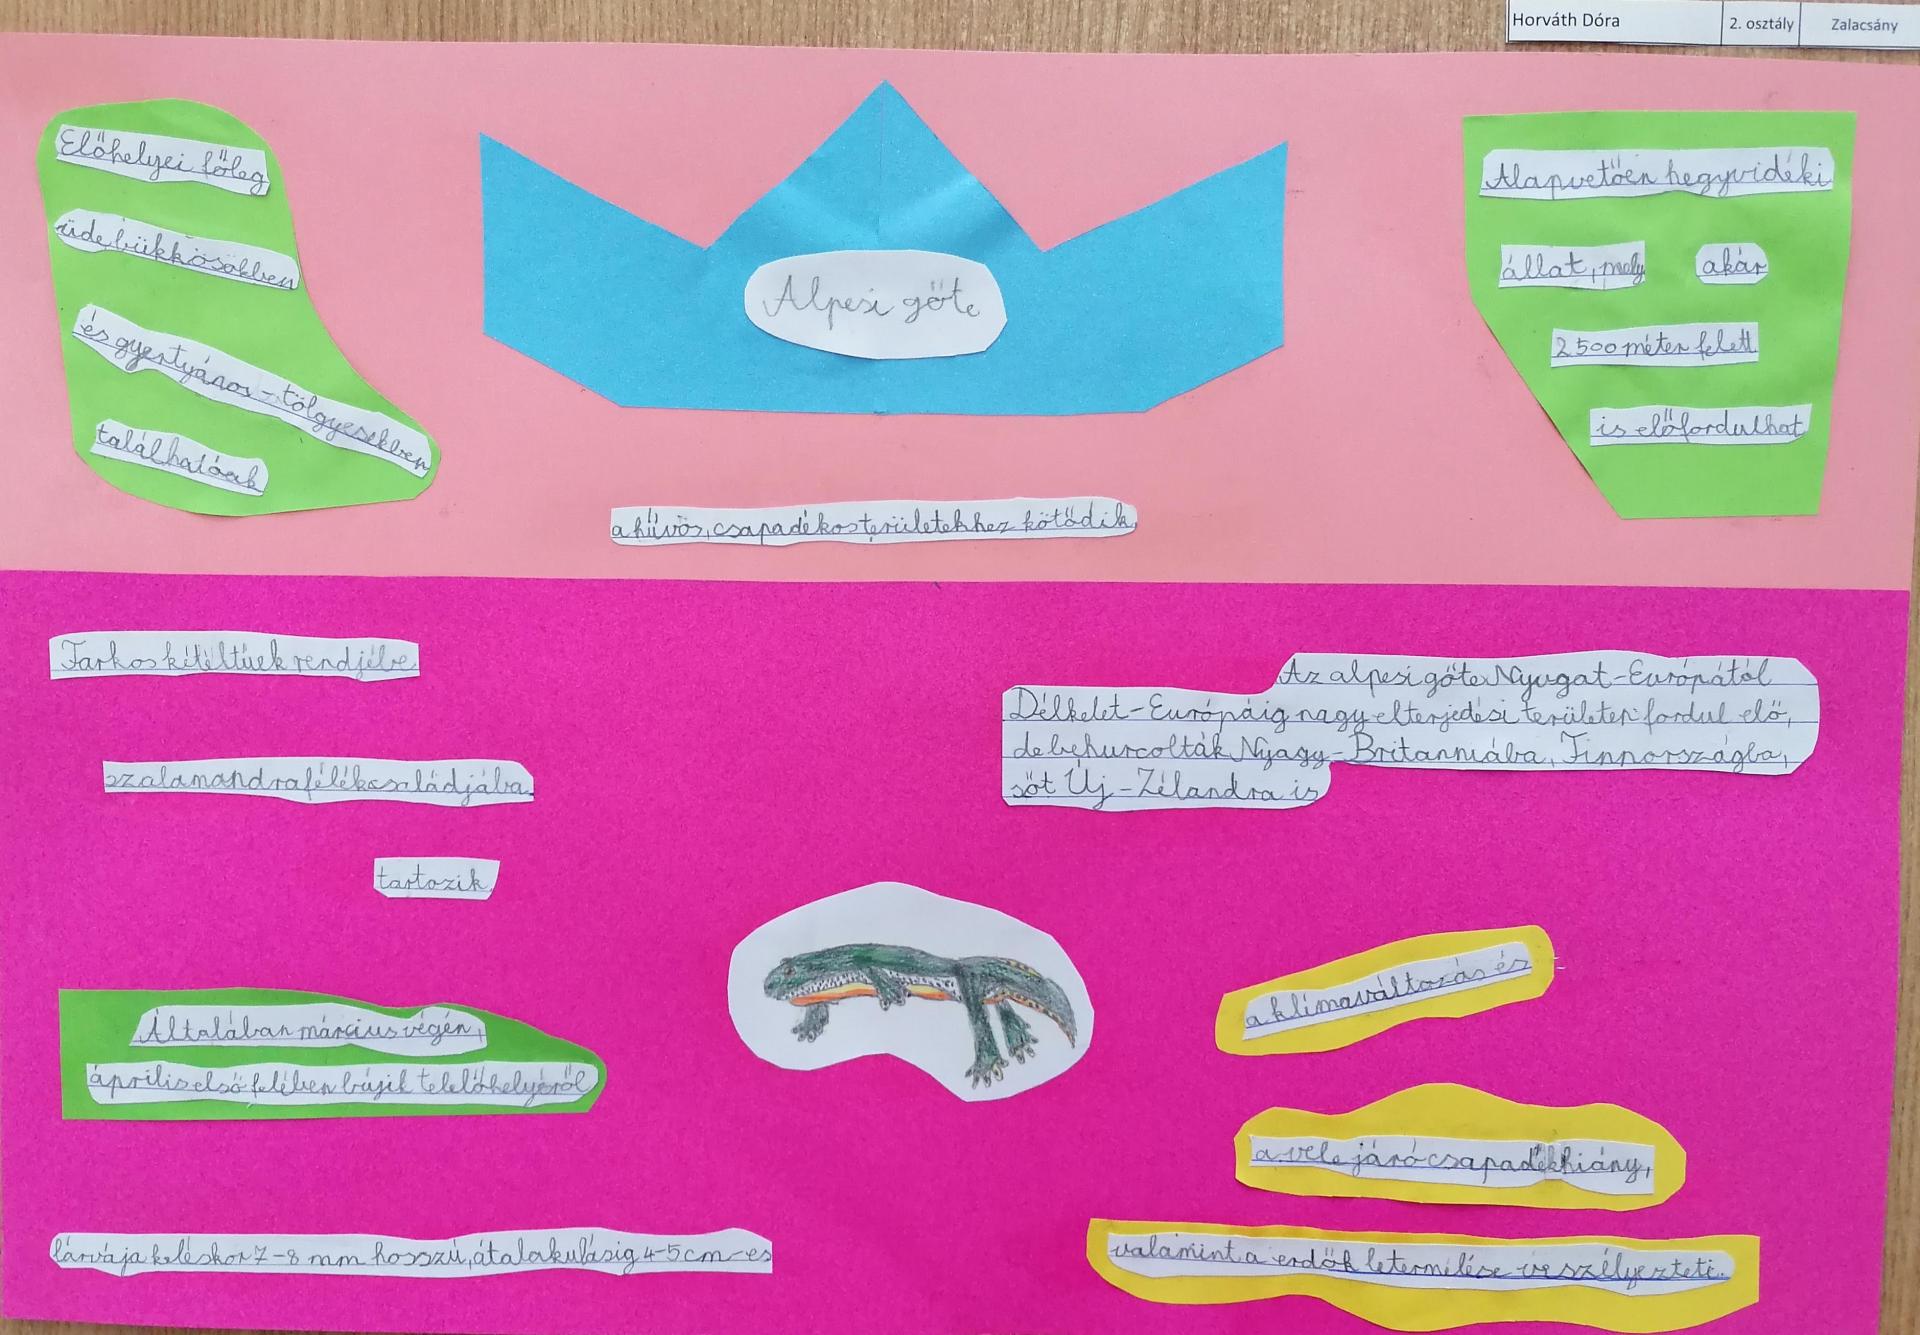 Horváth Dóra 2. osztály Zalacsány
Alpesi gőte
Előhelyei főleg
üde bükkösökben
és gyertyános-tölgyesekben
találhatóak
Alapvetően hegyvidéki
állat, mely akár
2500 méter felett
is előfordulhat
a hűvös, csapadékos területekhez kötődik
Farkos kétéltűek rendjébe
szalamandrafélék családjába
tartozik
Az alpesi gőte Nyugat-Európától
Délkelet-Európáig nagy elterjedési területen fordul elő,
de behurcolták Nyagy-Britanniába, Finnországba,
sőt Új-Zélandra is
Általában március végén,
április első felében bújik telelőhelyéről
lárvája keléskor 7-8 mm hosszú, átalakulásig 4-5 cm-es
a klímaváltozás és
a vele járó csapadékhiány,
valamint a erdők letermelése veszélyezteti.